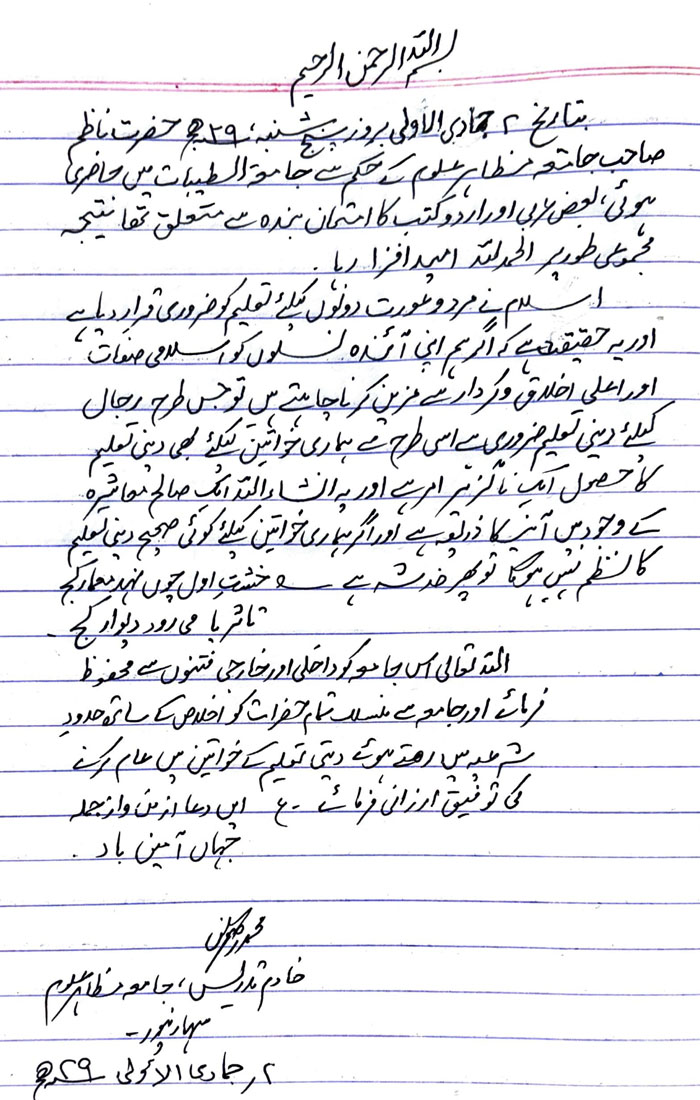 بسم اللہ الرحمن الرحیم
بتاریخ ۲ جمادی الاولی بروز پنج شنبہ، ۲۹ھ حضرت ناظم
صاحب جامعہ مظاہر علوم کے حکم سے جامعۃ الطیبات میں حاضری
ہوئی، بعض عربی اور اردو کتب کا امتحان بندہ سے متعلق تھا نتیجہ
مجموعی طور پر الحمد للہ امید افزا رہا .
اسلام نے مرد و عورت دونوں کیلئے تعلیم کو ضروری قرار دیا ہے
اور یہ حقیقت ہے کہ اگر ہم اپنی آئندہ نسلوں کو اسلامی صفات
اور اعلی اخلاق و کردار سے مزین کرنا چاہتے ہیں تو جس طرح رجال
کیلئے دینی تعلیم ضروری ہے اسی طرح سے ہماری خواتین کیلئے بھی دینی تعلیم
کا حصول ایک ناگزیر امر ہے اور یہ انشاء اللہ ایک صالح معاشرہ
کے وجود میں آنے کا ذریعہ ہے اور اگر ہماری خواتین کیلئے کوئی صحیح دینی تعلیم
کا نظم نہیں ہوگا تو پھر خدشہ ہے ؎ خشت اول چوں نہد معمار کج
تا ثریا می رود دیوار کج ۔
اللہ تعالی اس جامعہ کو داخلی اور خارجی فتنوں سے محفوظ
فرمائے اور جامعہ سے منسلک تمام حضرات کو اخلاص کے ساتھ حدود
شرعیہ میں رہتے ہوئے دینی تعلیم کے خواتین میں عام کرنے
کی توفیق ارزانی فرمائے ۔ ع ایں دعا از من و از جملہ
جہاں آمین باد .
محمد
خادم تدریس، جامعہ مظاہر علوم
سہارنپور ۔
۲ جمادی الاولی ۲۹ھ